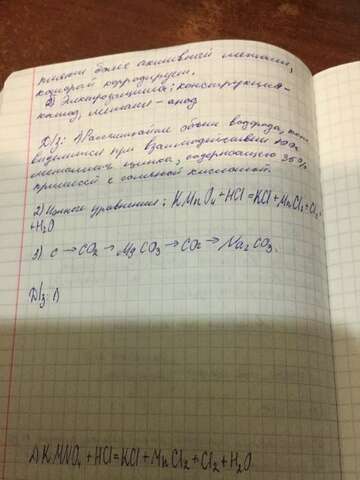 более активный металл,
который корродирует.
2) Электрозащита; конструкция -
катод, металл - анод
Д/з: 1) Рассчитайте объем водорода,
выделится при взаимодействии
цинка, содержащего
примесей с соляной кислотой.
2) уравнения: KMnO4 + HCl = KCl + MnCl2 + Cl2 +
+ H2O
3) C → CO2 → MgCO3 → CO2 → Na2CO3.
Д/з: 1)
2) KMNO4 + HCl = KCl + MnCl2 + Cl2 + H2O